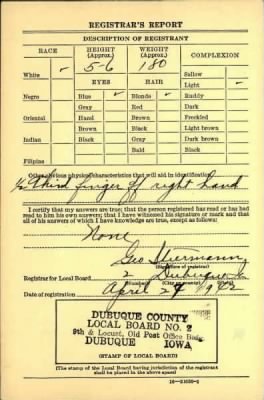 REGISTRAR'S REPORT
DESCRIPTION OF REGISTRANT
RACE HEIGHT (Approx.) WEIGHT (Approx.) COMPLEXION
5-6 180
White ✓ Sallow
EYES HAIR Light ✓
Negro Blue ✓ Blonde ✓ Ruddy
Gray Red Dark
Oriental Hazel Brown Freckled
Brown Black Light brown
Indian Black Gray Dark brown
Bald Black
Filipino
Other obvious physical characteristics that will aid in identification
1/2 third finger off right hand
I certify that my answers are true; that the person registered has read or has had read to him his own answers; that I have witnessed his signature or mark and that all of his answers of which I have knowledge are true, except as follows:
None
Geo
(Signature of registrar)
Registrar for Local Board 2 Dubuque
(Number) (City or county)
Date of registration April 27 1942
DUBUQUE COUNTY
LOCAL BOARD NO. 2
9th & Locust, Old Post Office Bldg.
DUBUQUE IOWA
(STAMP OF LOCAL BOARD)
(The stamp of the Local Board having jurisdiction of the registrant shall be placed in the above space)